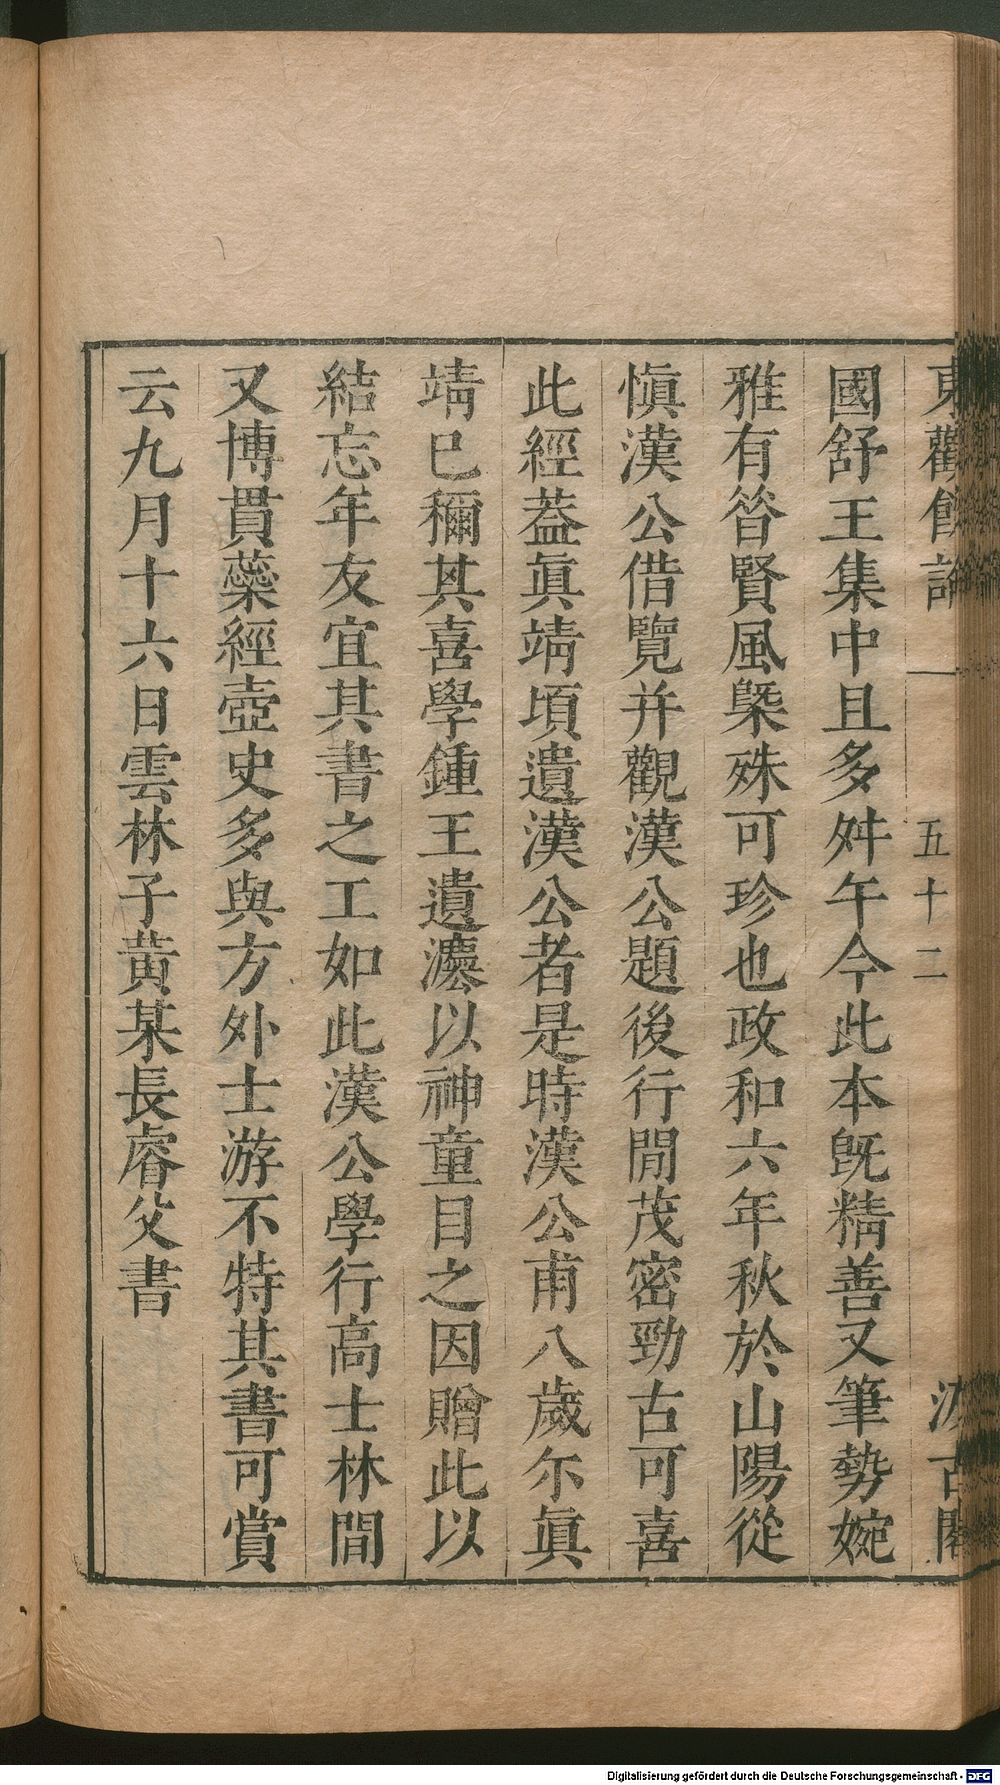 東觀餘論
五十二
汲古閣
國舒王集中且多舛午今此本旣精善又筆勢婉
雅有昝賢風槩殊可珍也政和六年秋於山陽從
愼漢公借覽并觀漢公題後行閒茂密勁古可喜
此經葢眞靖頃遺漢公者是時漢公甫八歲尓眞
靖巳穪其喜學鍾王遺灋以神童目之因贈此以
結忘年友宜其書之工如此漢公學行高士林間
又博貫藥經壺史多與方外士游不特其書可賞
云九月十六日雲林子黃某長睿父書
Digitalisierung gefördert durch die Deutsche Forschungsgemeinschaft - DFG